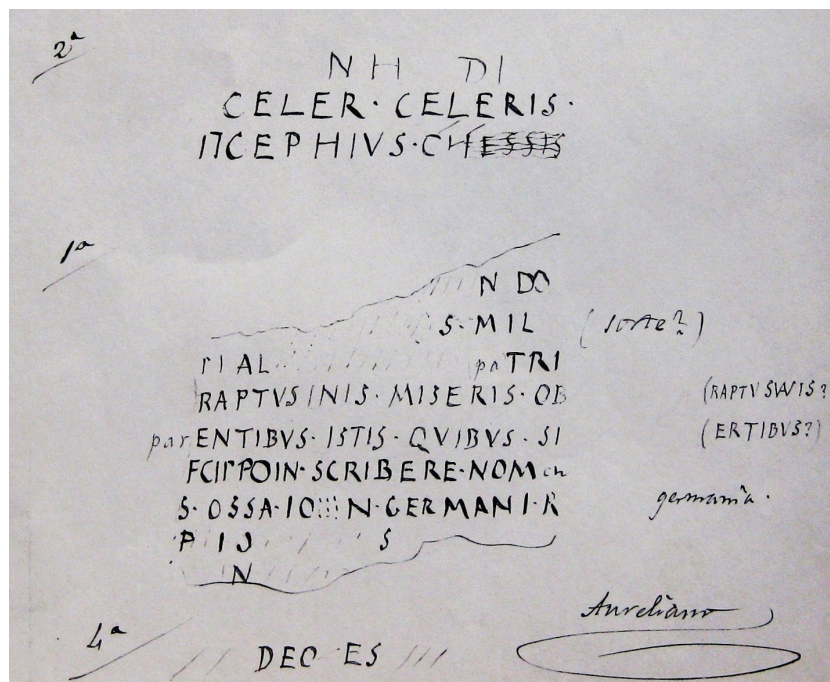 2ª
NH DI
CELER · CELERIS ·
CEPHIVS · CHESSIS
1ª
N DO
S · MIL (sorte?)
IAL paTRI
RAPTVS INIS · MISERIS · OB (RAPTVSVVIS?
parENTIBVS · ISTIS · QVIBVS · SI (ERTIBVS?)
POIN · SCRIBERE · NOMen
S · OSSA · IO N · GERMANI · R germania.
P I S
N
Aureliano
4ª
DEO ES